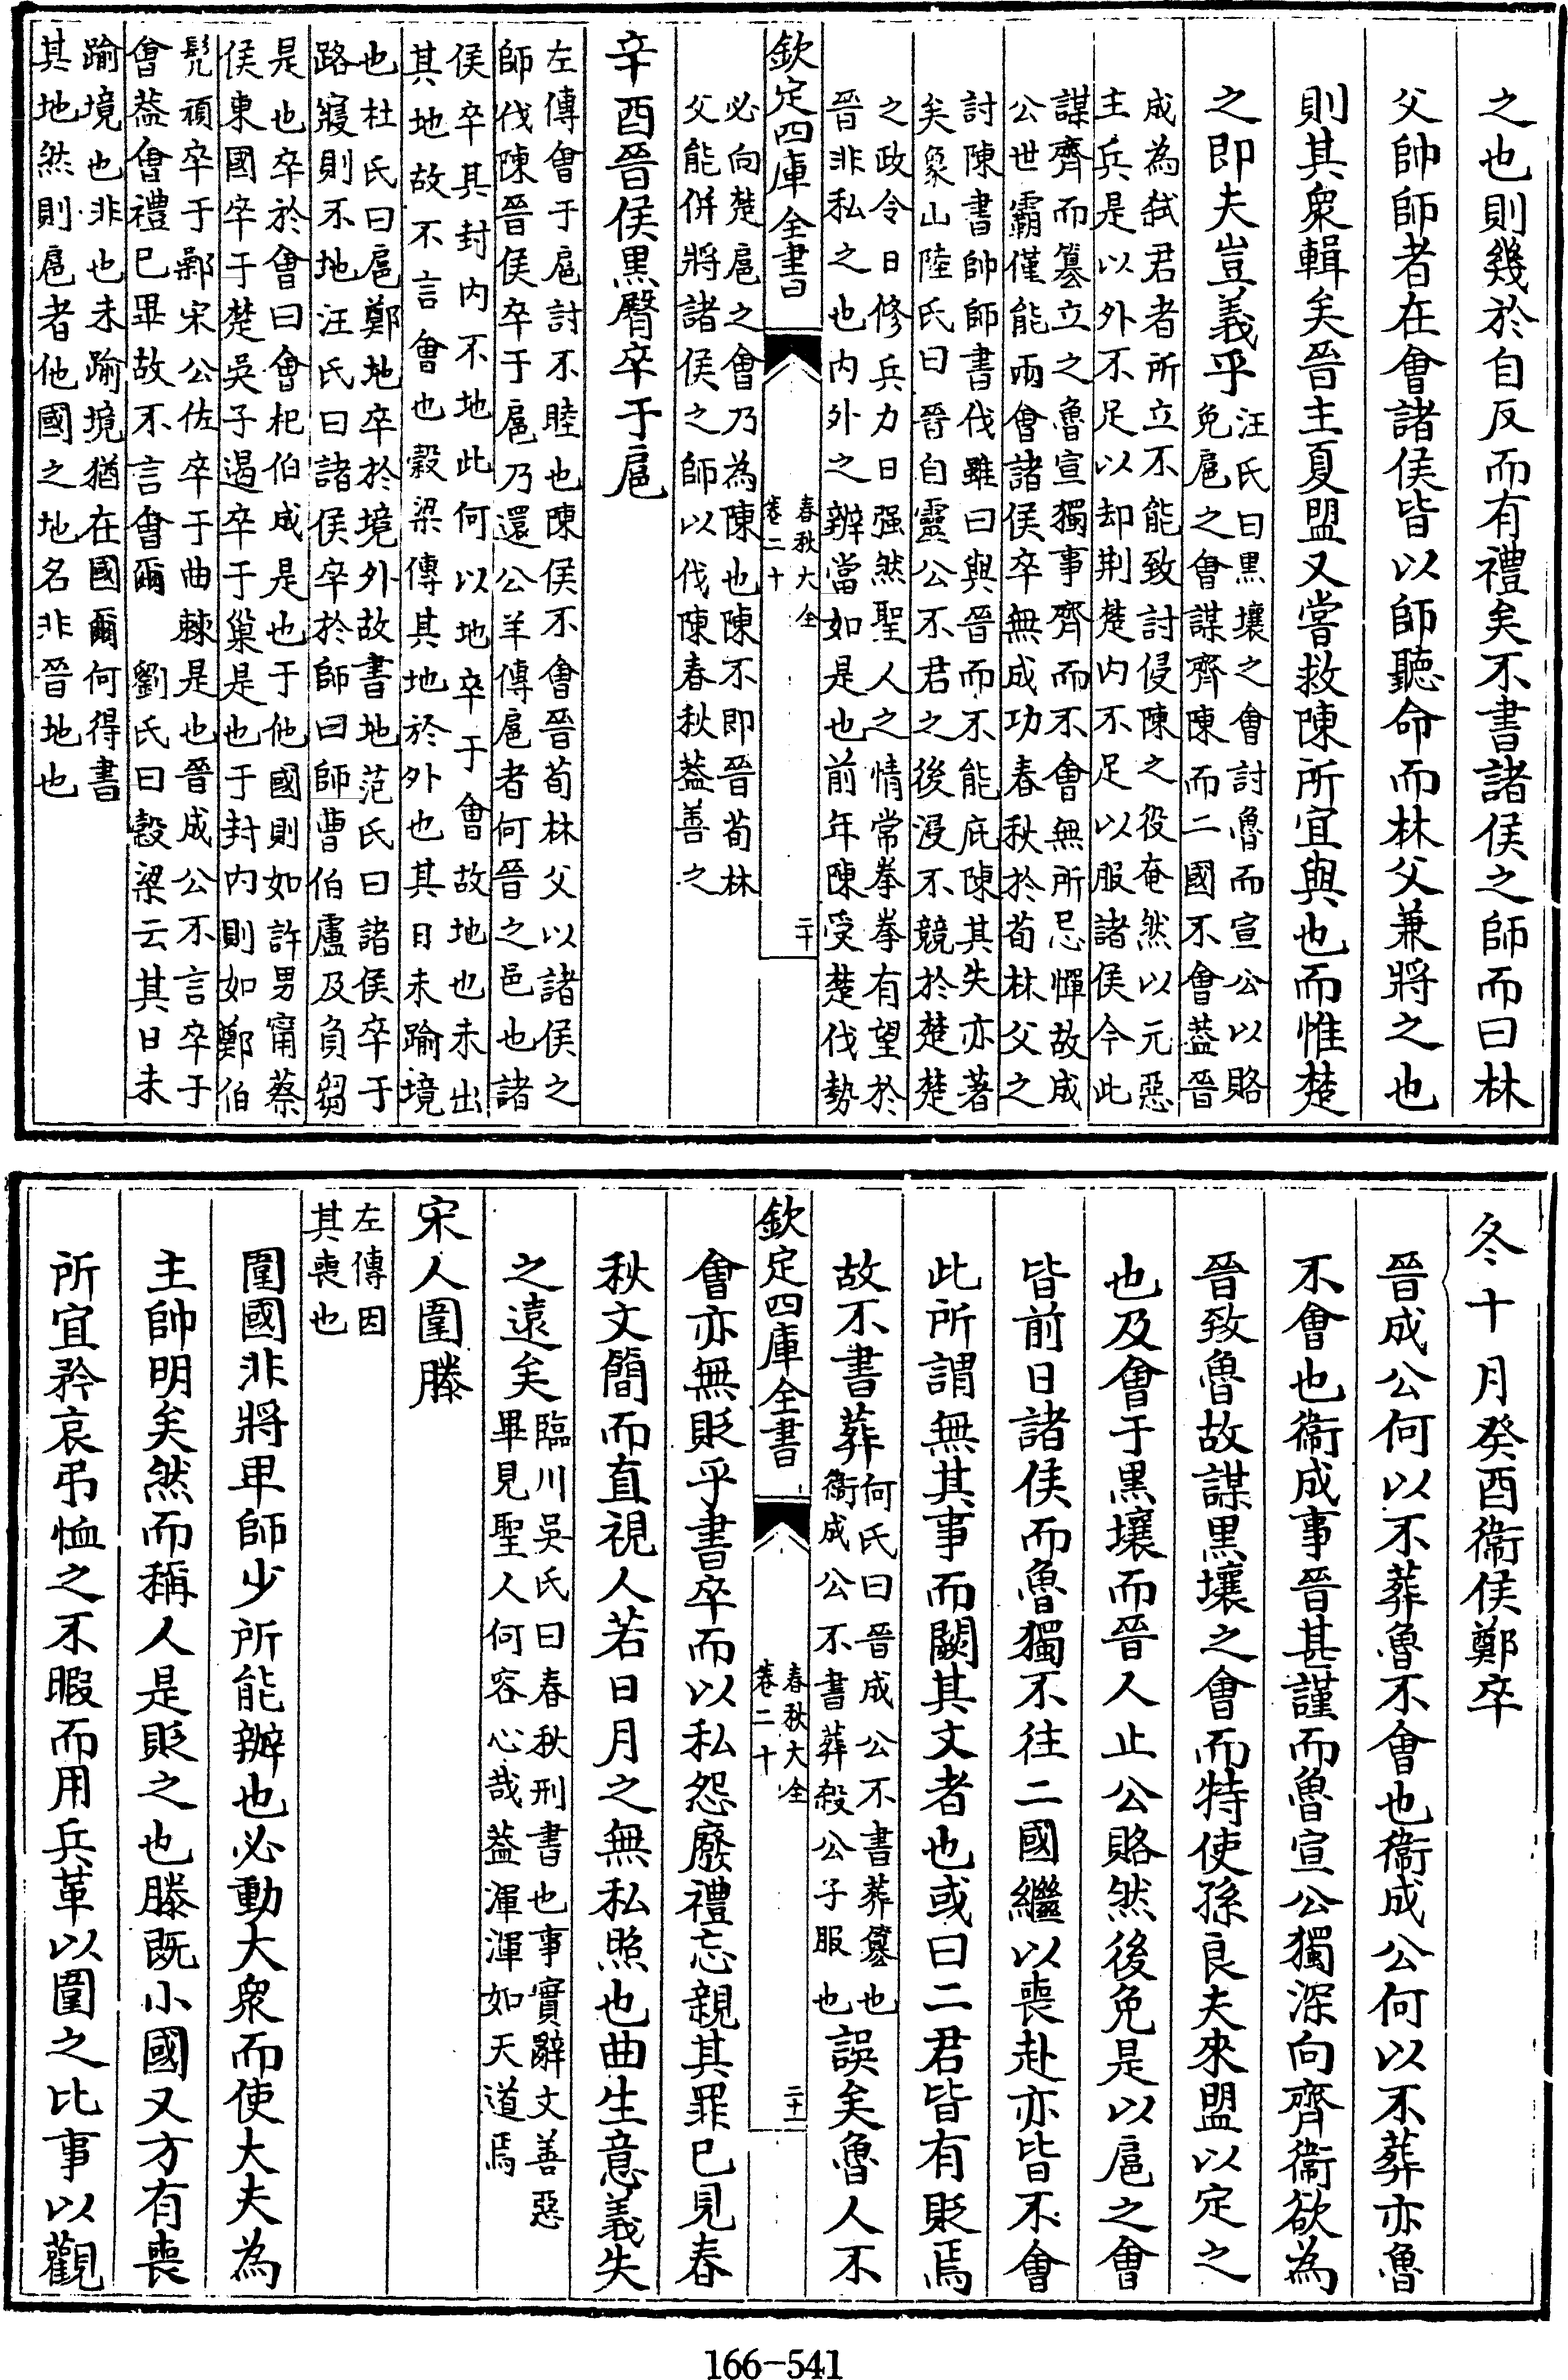 之也則幾於自反而有禮矣不書諸侯之師而曰林
父帥師者在會諸侯皆以師聽命而林父兼將之也
則其衆輯矣晉主夏盟又嘗救陳所宜與也而惟楚
之即夫豈義乎
汪氏曰黒壤之會討魯而宣公以賂
免扈之會謀齊陳而二國不會蓋晉
成為弑君者所立不能致討侵陳之役奄然以元惡
主兵是以外不足以却荆楚内不足以服諸侯今此
謀齊而簒立之魯宣獨事齊而不會無所忌憚故成
公世霸僅能兩會諸侯卒無成功春秋於荀林父之
討陳書帥師書伐雖曰與晉而不能庇陳其失亦著
矣象山陸氏曰晉自靈公不君之後浸不競於楚楚
之政令日修兵力日强然聖人之情常拳拳有望於
晉非私之也内外之辨當如是也前年陳受楚伐勢
欽定四庫全書
春秋大全
卷二十
二十
必向楚扈之會乃為陳也陳不即晉荀林
父能併將諸侯之師以伐陳春秋蓋善之
辛酉晉侯黒臀卒于扈
左傳會于扈討不睦也陳侯不會晉荀林父以諸侯之
師伐陳晉侯卒于扈乃還公羊傳扈者何晉之邑也諸
侯卒其封内不地此何以地卒于會故地也未出
其地故不言會也穀梁傳其地於外也其日未踰境
也杜氏曰扈鄭地卒於境外故書地范氏曰諸侯卒于
路寢則不地汪氏曰諸侯卒於師曰師曹伯廬及負芻
是也卒於會曰會杞伯成是也于他國則如許男甯蔡
侯東國卒于楚吳子遏卒于巢是也于封内則如鄭伯
髠頑卒于鄵宋公佐卒于曲棘是也晉成公不言卒于
會蓋會禮已畢故不言會爾　劉氏曰穀梁云其日未
踰境也非也未踰境猶在國爾何得書
其地然則扈者他國之地名非晉地也
冬十月癸酉衞侯鄭卒
晉成公何以不葬魯不會也衞成公何以不葬亦魯
不會也衞成事晉甚謹而魯宣公獨深向齊衞欲為
晉致魯故謀黒壤之會而特使孫良夫來盟以定之
也及會于黒壤而晉人止公賂然後免是以扈之會
皆前日諸侯而魯獨不往二國繼以喪赴亦皆不會
此所謂無其事而闕其文者也或曰二君皆有貶焉
故不書葬
何氏曰晉成公不書葬簒也
衞成公不書葬殺公子服也
誤矣魯人不
欽定四庫全書
春秋大全
卷二十
二十一
會亦無貶乎書卒而以私怨廢禮忘親其罪已見春
秋文簡而直視人若日月之無私照也曲生意義失
之遠矣
臨川吳氏曰春秋刑書也事實辭文善惡
畢見聖人何容心哉蓋渾渾如天道焉
宋人圍滕
左傳因
其喪也
圍國非將卑師少所能辦也必動大衆而使大夫為
主帥明矣然而稱人是貶之也滕既小國又方有喪
所宜矜哀弔恤之不暇而用兵革以圍之比事以觀
166-541